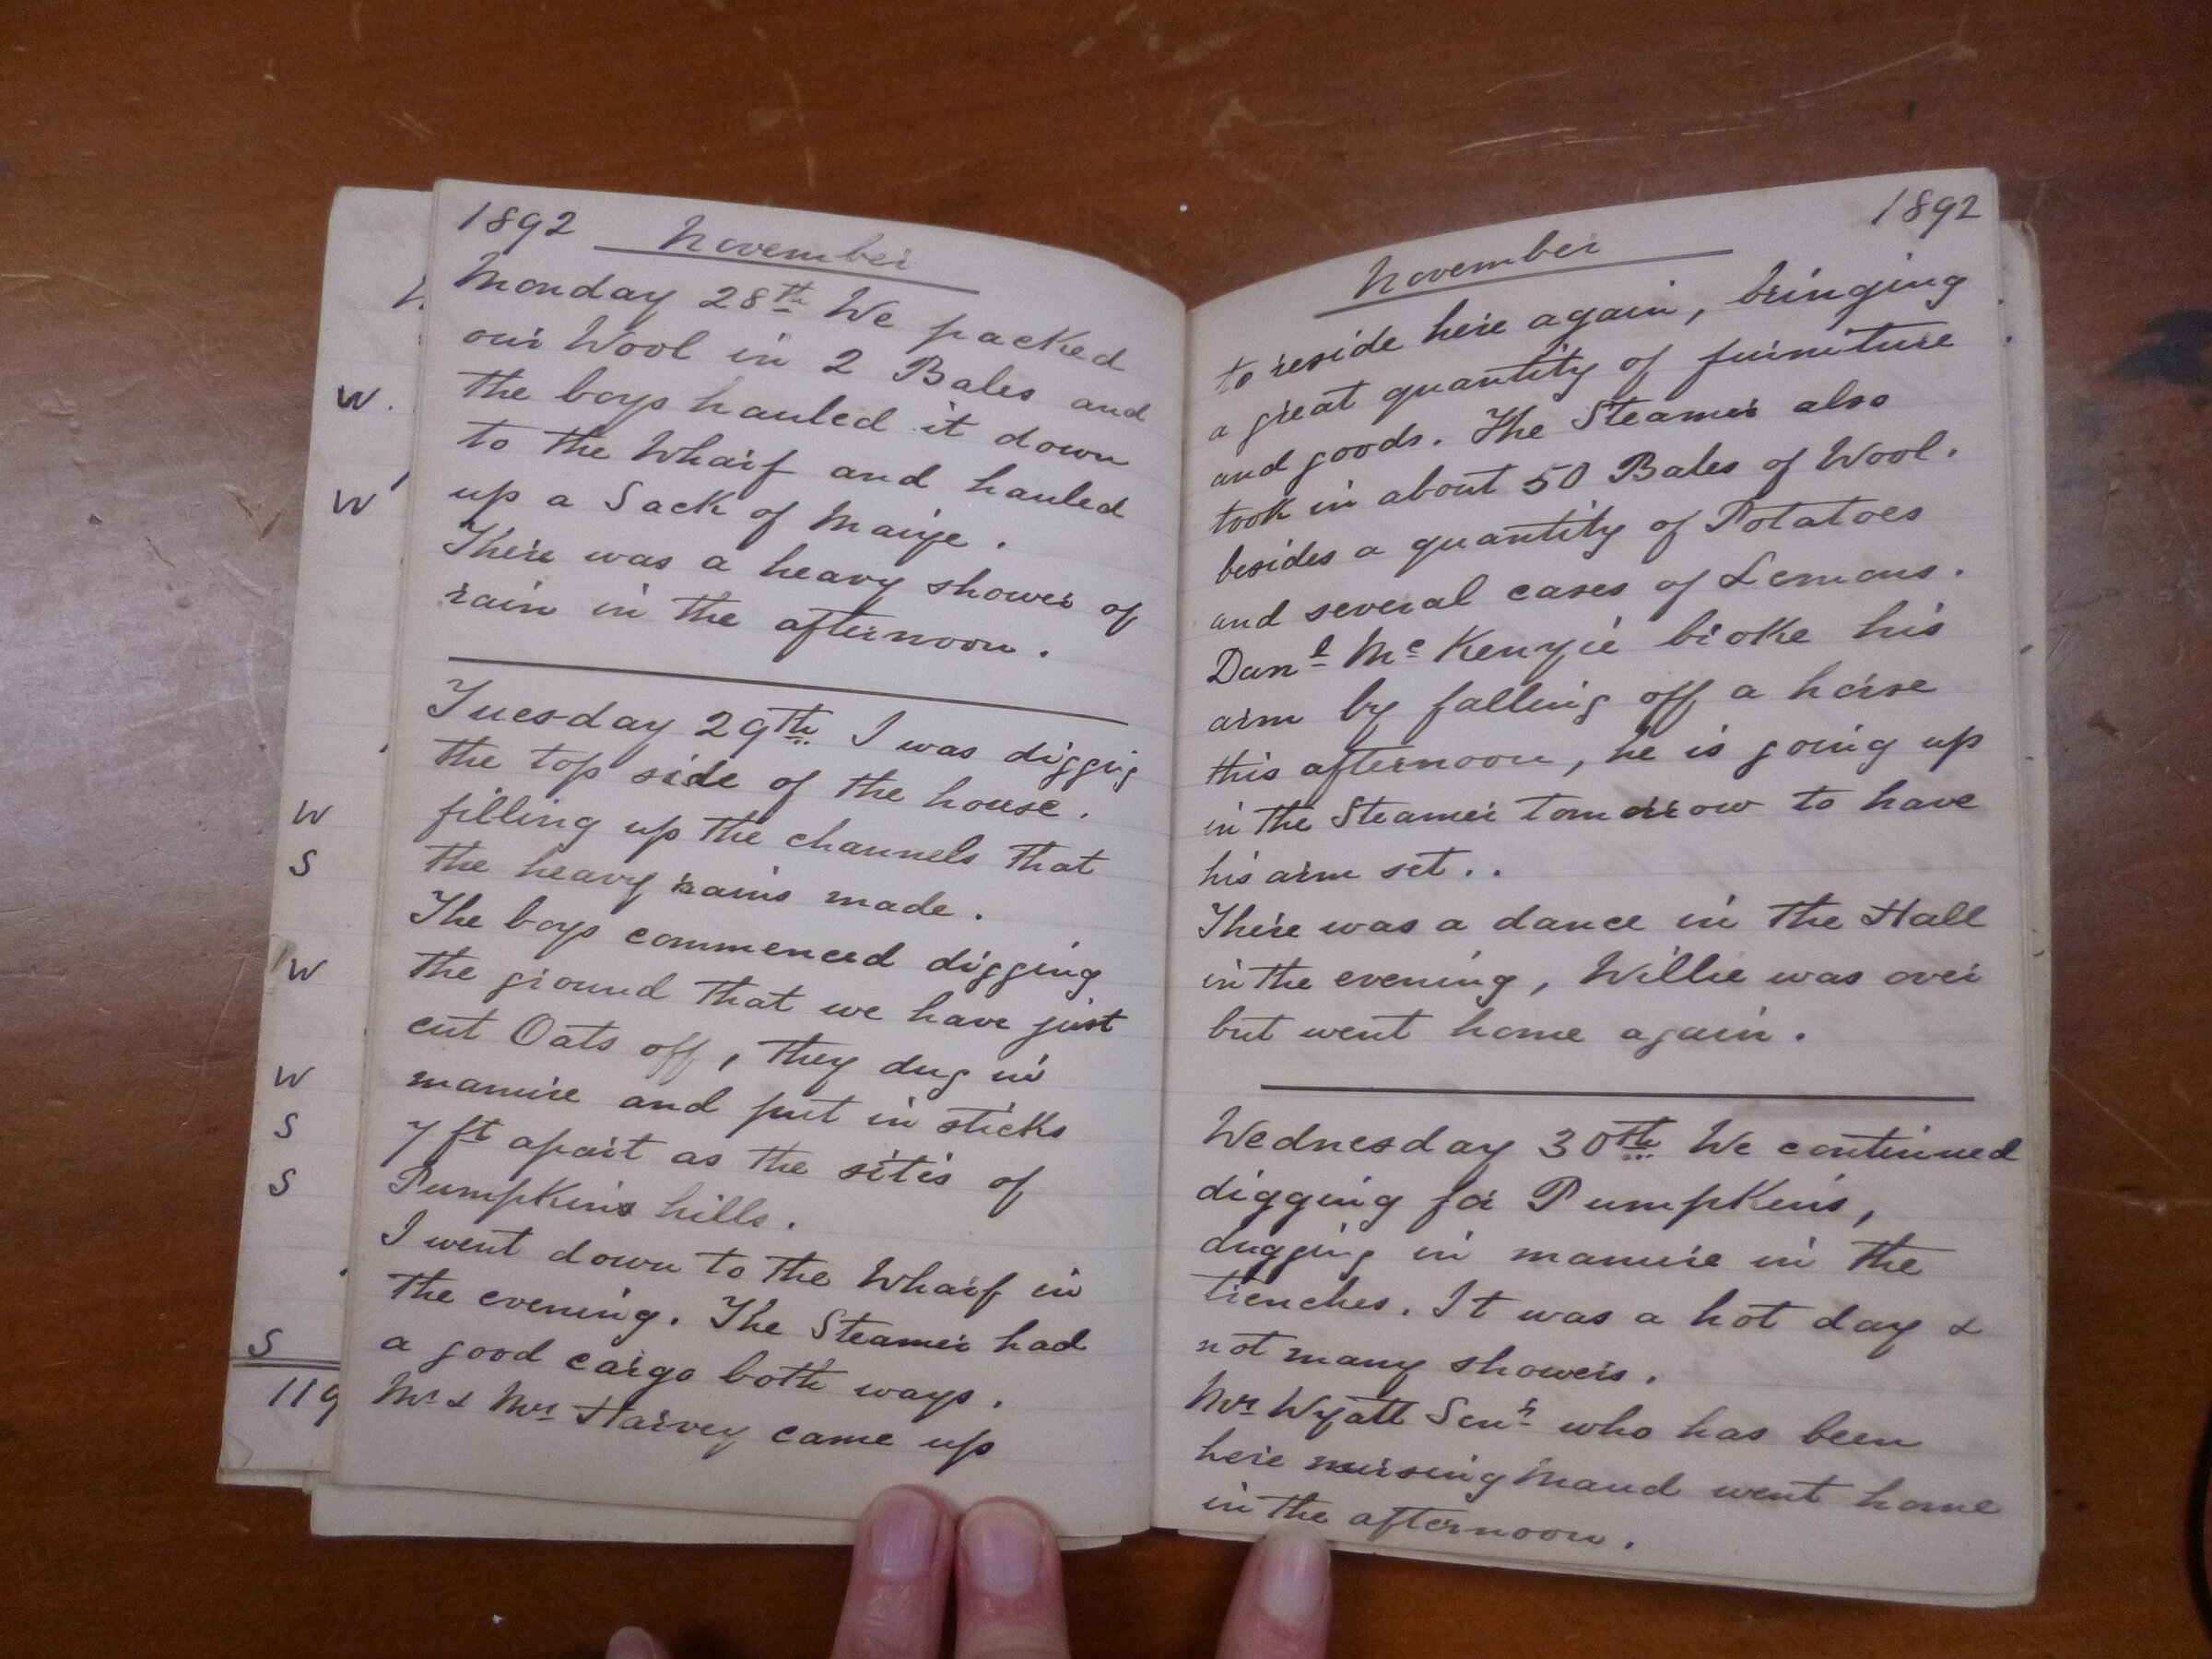 W.
W
W
S
W
W
S
S
S
119
1892 November
Monday 28th We packed
our Wool in 2 Bales and
the boys hauled it down
to the Wharf and hauled
up a Sack of Maize.
There was a heavy shower of
rain in the afternoon.
Tuesday 29th. I was digging
the top side of the house.
filling up the channels that
the heavy rains made.
The boys commenced digging
the ground that we have just
cut Oats off, they dug in
manure and put in sticks
7 ft apart as the sites of
Pumpkins hills.
I went down to the Wharf in
the evening. The Steamer had
a good cargo both ways.
Mr & Mrs Harvey came up
November 1892
to reside here again, bringing
a great quantity of furniture
and goods. The Steamer also
took in about 50 Bales of Wool.
besides a quantity of Potatoes
and several cases of Lemons.
Danl McKenzie broke his
arm by falling off a horse
this afternoon, he is going up
in the Steamer tomorrow to have
his arm set..
There was a dance in the Hall
in the evening, Willie was over
but went home again.
Wednesday 30th We continued
digging for Pumpkins,
digging in manure in the
trenches. It was a hot day &
not many showers.
Mrs Wyatt Senr who has been
here nursing Maud went home
in the afternoon.